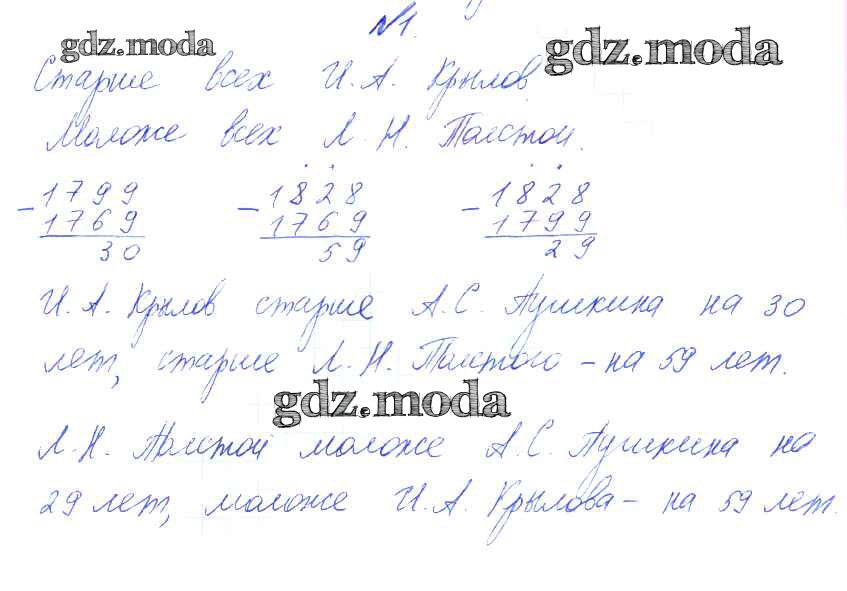 №1.
gdz.moda gdz.moda
Старше всех И. А. Крылов
Моложе всех Л. Н. Толстой.
- 1799 - 1828 - 1828
1769 1769 1799
30 59 29
И. А. Крылов старше А. С. Пушкина на 30
лет, старше Л. Н. Толстого – на 59 лет.
gdz.moda
Л. Н. Толстой моложе А. С. Пушкина на
29 лет, моложе И. А. Крылова – на 59 лет.